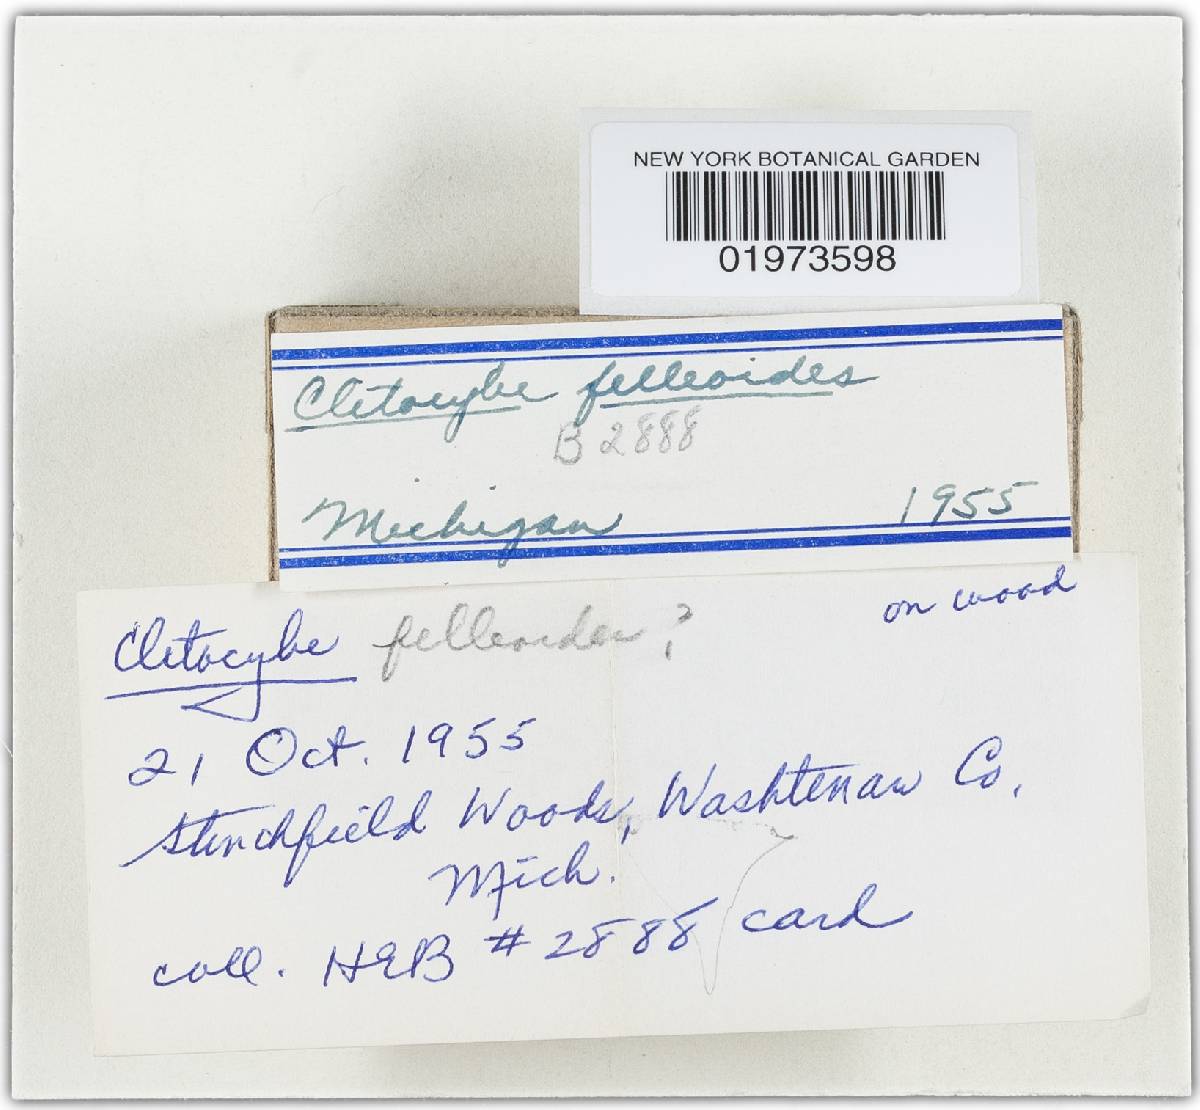 NEW YORK BOTANICAL GARDEN
01973598
Clitocybe felleoides
B 2888
Michigan 1955
on wood
Clitocybe felleoides?
21 Oct. 1955
Stinchfield Woods, Washtenaw Co.
Mich.
coll. HEB # 2888 card